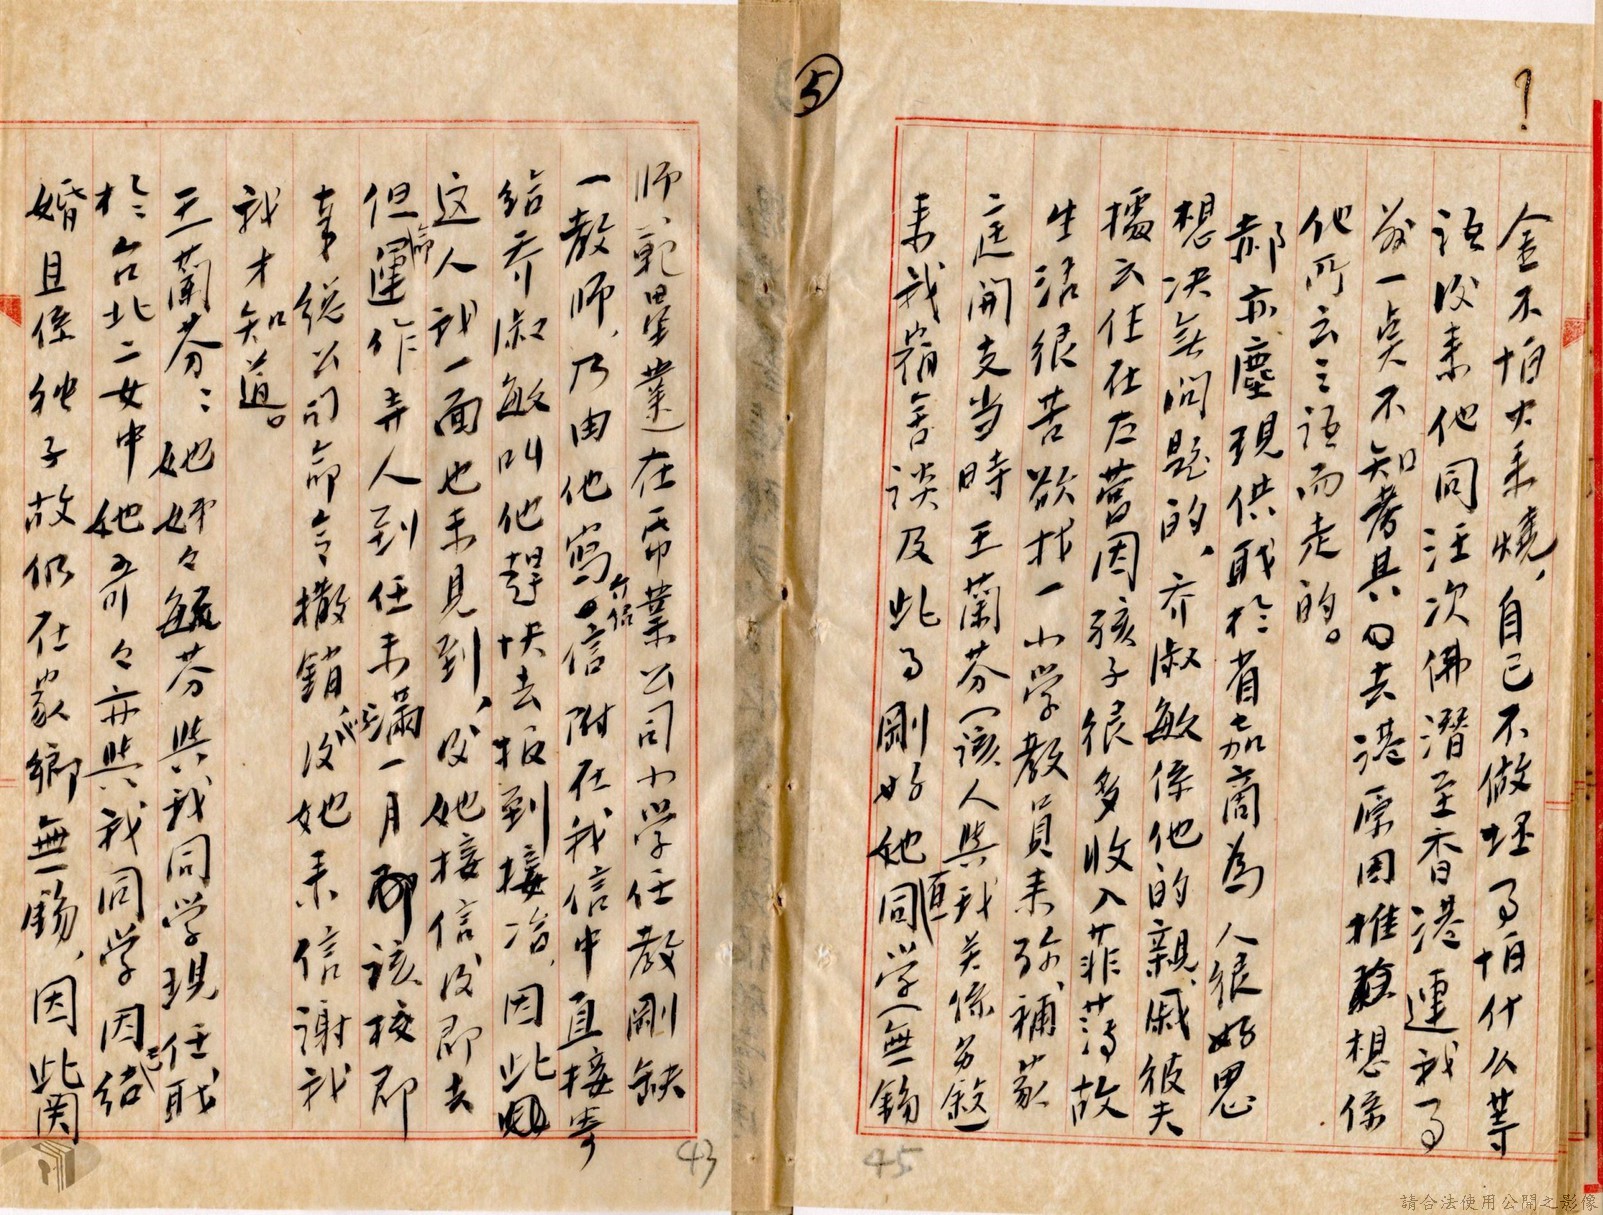 ?
金不怕火来燒,自己不做坏了怕什么等
語後来他同汪次佛潛至香港連我了
前一点不知考其内去港原因推想係
他所云之語而走的。
郝亦塵現供职於省加商為人很好思
想决無问題的,乔淑敏係他的親戚彼夫
擂云住在左營因孩子很多收入菲薄故
生活很苦欲找一小学教員来弥補家
庭開支当時王蘭芬(該人與我关係另敘)
来我宿舍談及此了剛好她同學(無錫
師範畢業)在帋業公司小学任教剛缺
一教師,乃由他寫介绍信附在我信中直接寄
给乔淑敏叫他趕快去报到接洽,因此
这人我一面也未見到,後她接信後即去
但命運作弄人到任未滿一月即該校即
奉総公司命令撤銷,後她来信謝我
我才知道。
王蘭芬:她姊々毓芬與我同学現任职
於台北二女中她哥々亦與我同学因已结
婚且係独子故仍在家鄉無錫,因此関
5
43
45
請合法使用公開之影像